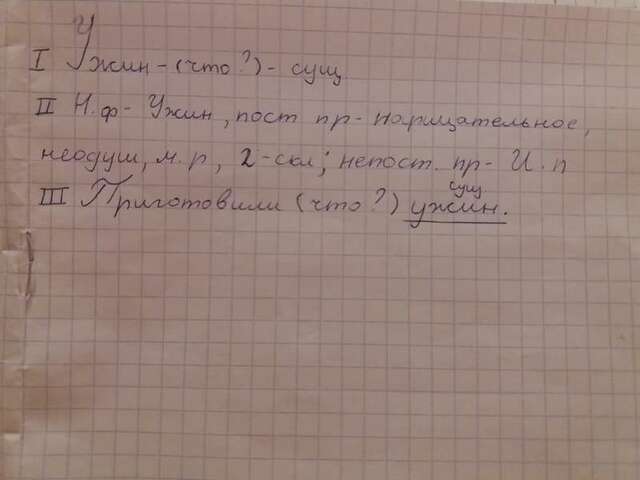 I Ужин - (что?) - сущ
II Н.ф - Ужин, пост пр - нарицательное,
неодуш, м.р, 2-скл; непост. пр - И.п
сущ
III Приготовили (что?) ужин.